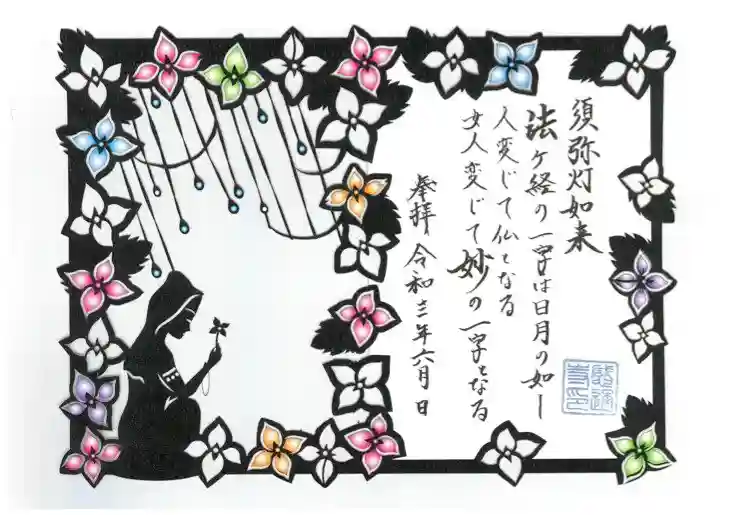 須弥灯如来
法ケ経の一字は日月の如し
人変じて仏となる
女人変じて妙の一字となる
奉拝 令和三年六月 日